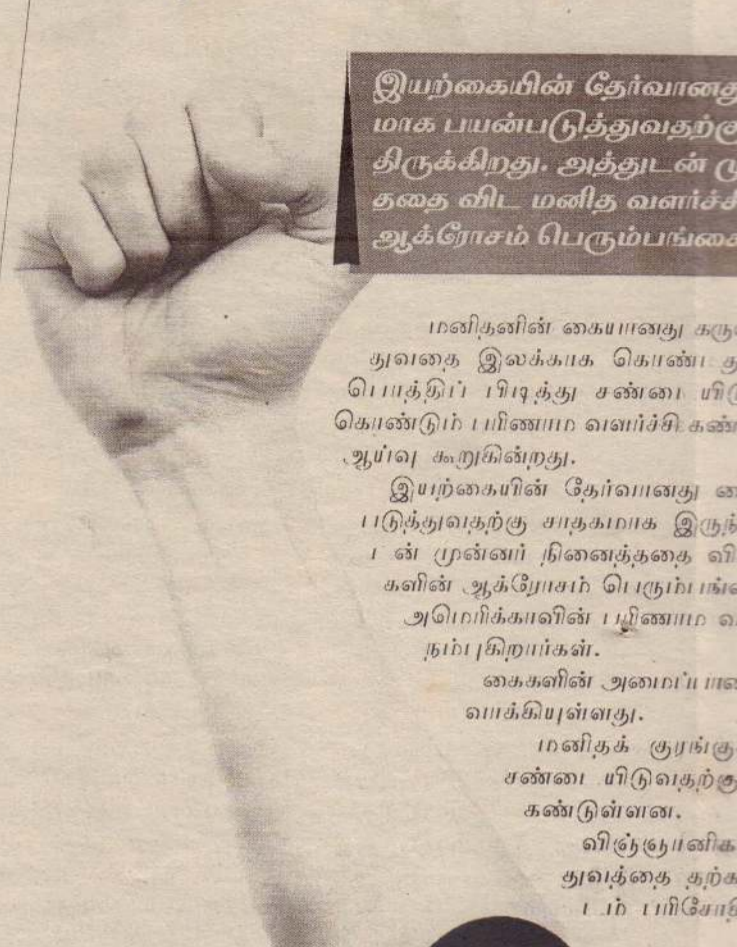 இயற்கையின் தேர்வானது
மாக பயன்படுத்துவதற்கு
திருக்கிறது. அத்துடன் மு
ததை விட மனித வளர்ச்சி
ஆக்ரோசம் பெரும்பங்கை
மனிதனின் கையானது கரு
துவதை இலக்காக கொண்ட து
பொத்திப் பிடித்து சண்டையிடு
கொண்டும் பரிணாம வளர்ச்சி கண்
ஆய்வு கூறுகின்றது.
இயற்கையின் தேர்வானது கை
படுத்துவதற்கு சாதகமாக இருந்
டன் முன்னர் நினைத்ததை வி
களின் ஆக்ரோசம் பெரும்பங்
அமெரிக்காவின் பரிணாம வ
நம்புகிறார்கள்.
கைகளின் அமைப்பான
வாக்கியுள்ளது.
மனிதக் குரங்கு
சண்டையிடுவதற்கு
கண்டுள்ளன.
விஞ்ஞானிக
துவத்தை தற்க
டம் பரிசோதி